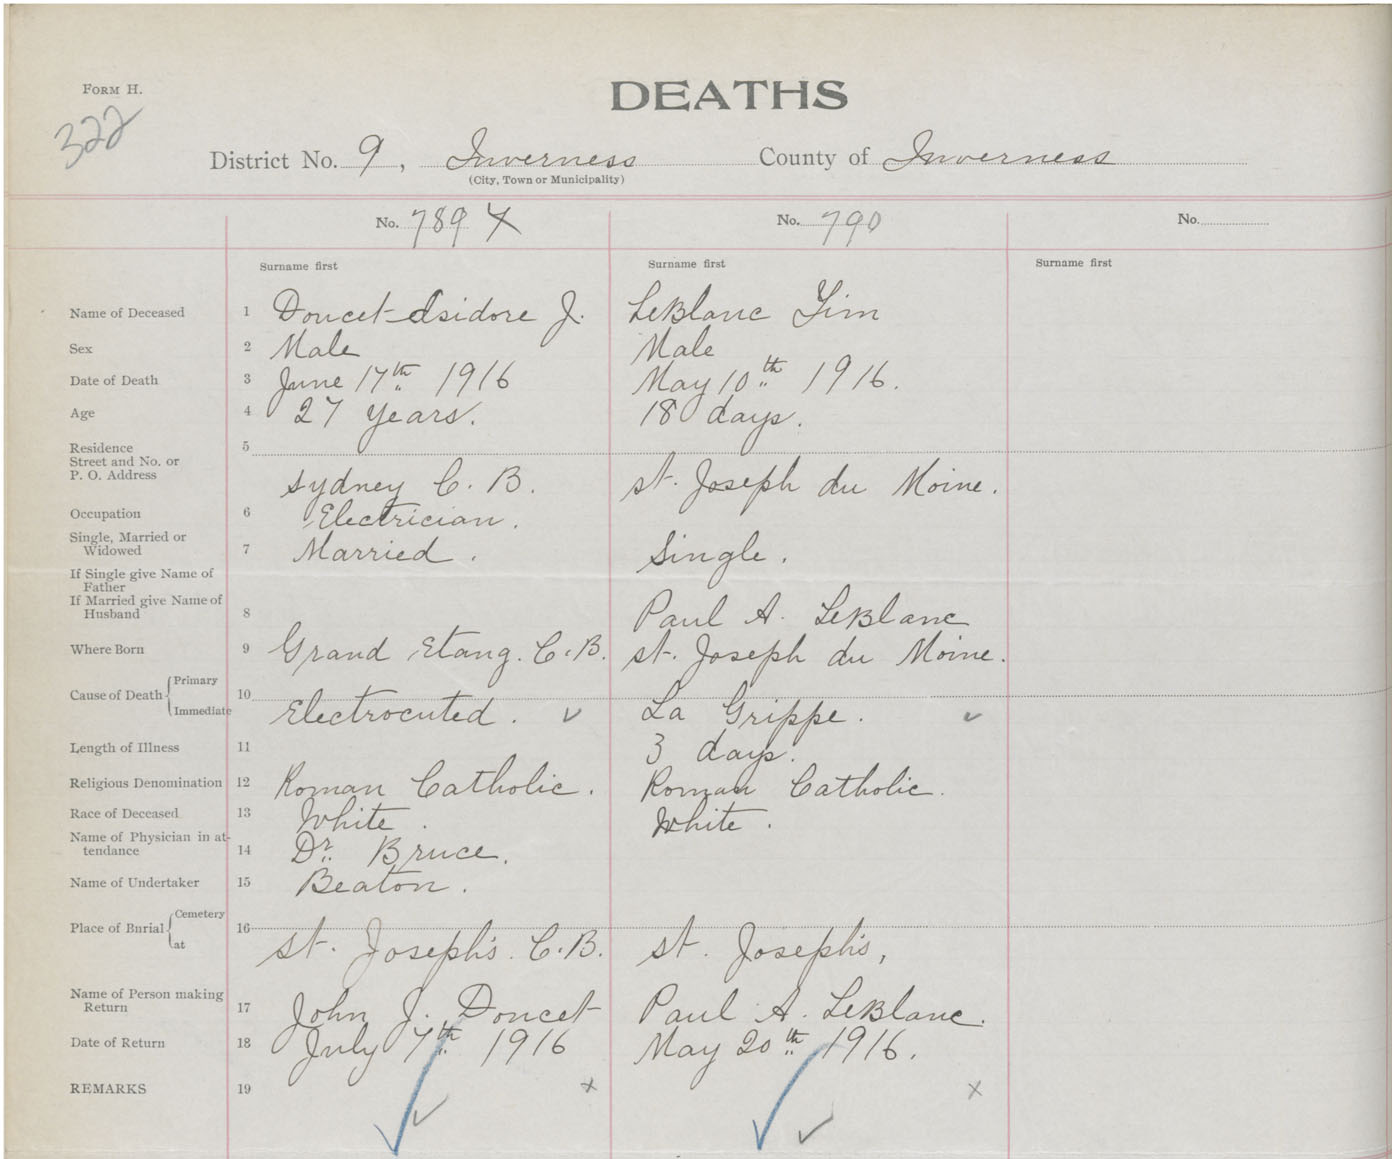 FORM H.
322
DEATHS
District No. 9, Inverness County of Inverness
(City, Town or Municipality)
No. 789 X No. 790 No.
Surname first Surname first Surname first
Name of Deceased 1 Doucet Isidore J. LeBlanc Jim
Sex 2 Male Male
Date of Death 3 June 17th 1916 May 10th 1916.
Age 4 27 years. 18 days.
Residence 5
Street and No. or
P. O. Address Sydney C. B. St. Joseph du Moine.
Occupation 6 Electrician.
Single, Married or
Widowed 7 Married. Single.
If Single give Name of
Father
If Married give Name of
Husband 8 Paul A. LeBlanc
Where Born 9 Grand Etang. C.B. St. Joseph du Moine.
Cause of Death Primary 10
Immediate Electrocuted. La Grippe.
Length of Illness 11 3 days.
Religious Denomination 12 Roman Catholic. Roman Catholic.
Race of Deceased 13 White. White.
Name of Physician in at-
tendance 14 Dr. Bruce.
Name of Undertaker 15 Beaton.
Place of Burial Cemetery 16
at St. Joseph's. C.B. St. Joseph's,
Name of Person making
Return 17 John J. Doucet Paul A. LeBlanc.
Date of Return 18 July 7th 1916 May 20th 1916.
REMARKS 19 x x